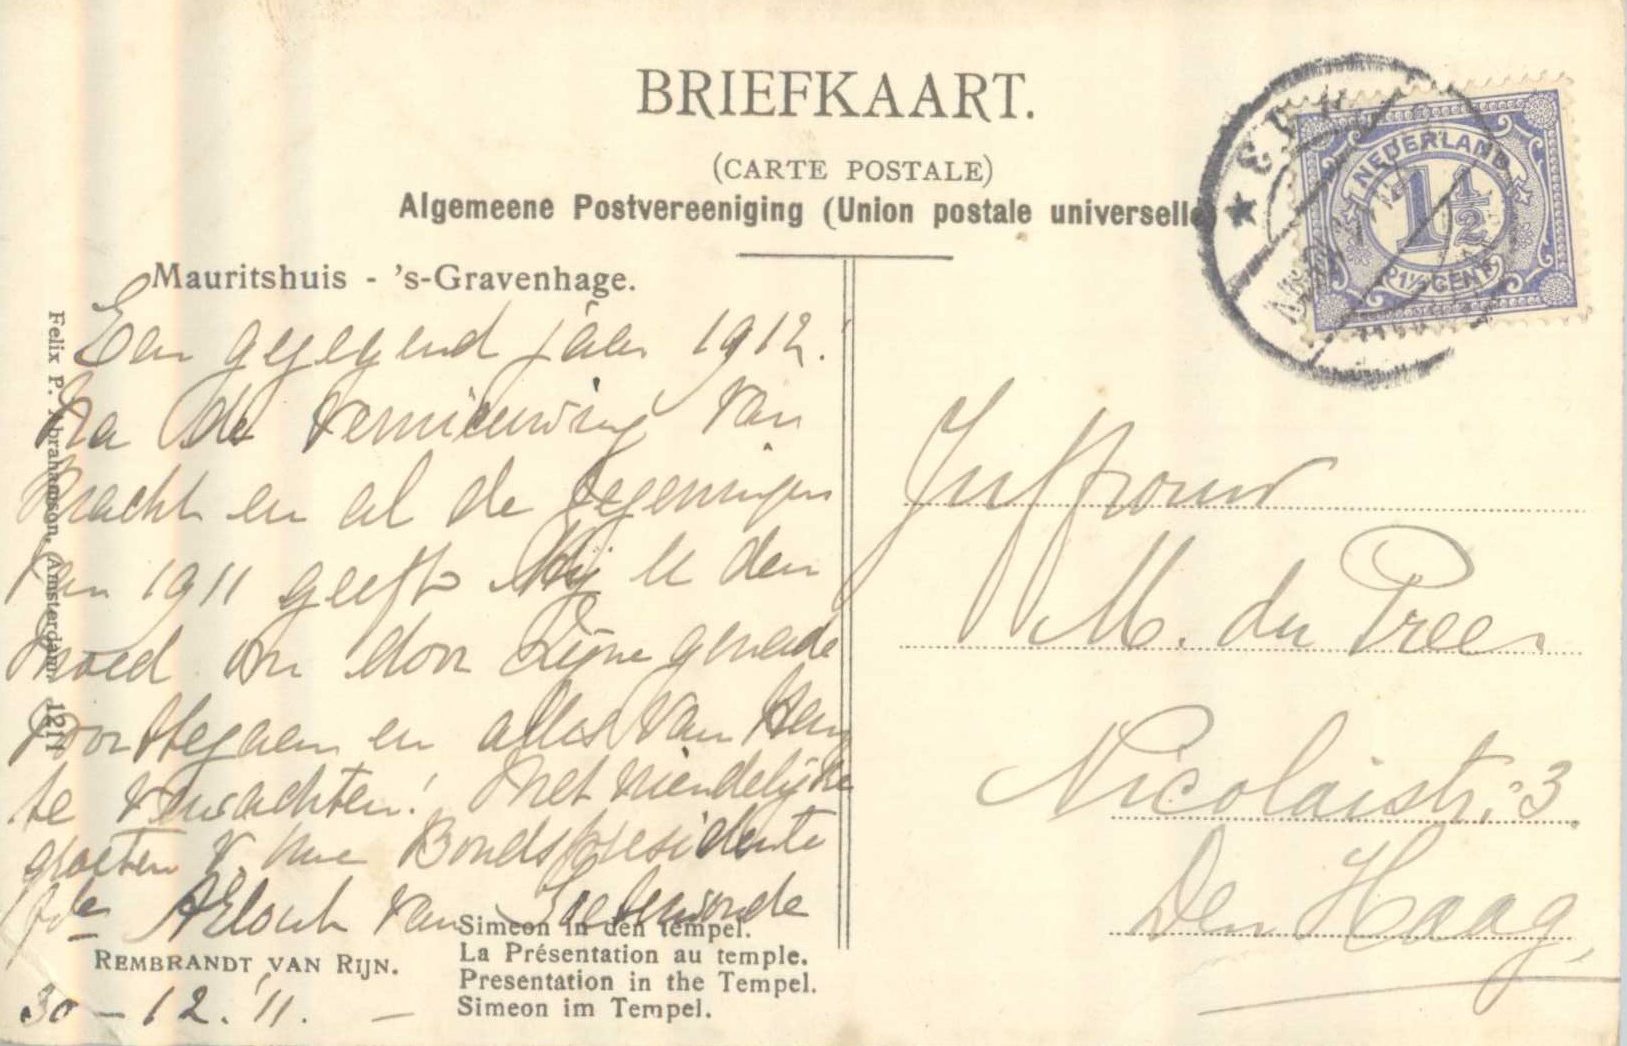 BRIEFKAART.
(CARTE POSTALE)
Algemeene Postvereeniging (Union postale universelle)
NEDERLAND
1 1/2
1½ CENT
Mauritshuis - 's-Gravenhage.
Een gezegend jaar 1912.
Na de vernieuwing van
kracht en al de zegeningen
van 1911 geeft Hij U den
moed om door Zijne genade
voorttegaan en alles van Hem
te verwachten! Met vriendelijke
groeten v. Uwe Bondspresidente
Elout van Soeterwoude
30-12.'11. -
Felix P. Abrahamson, Amsterdam 1211
REMBRANDT VAN RIJN.
Simeon in den tempel.
La Présentation au temple.
Presentation in the Tempel.
Simeon im Tempel.
Juffrouw
M. du Pree
Nicolaistr: 3
Den Haag,